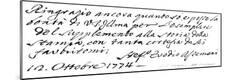 Ringrazio ancora quanto so e posso la
bontà di V. S. Illma per l'esemplare
del Supplemento alla Storia della
Stampa, con tanta cortesia da lei
favoritomi.
Assemani
12. Ottobre 1774